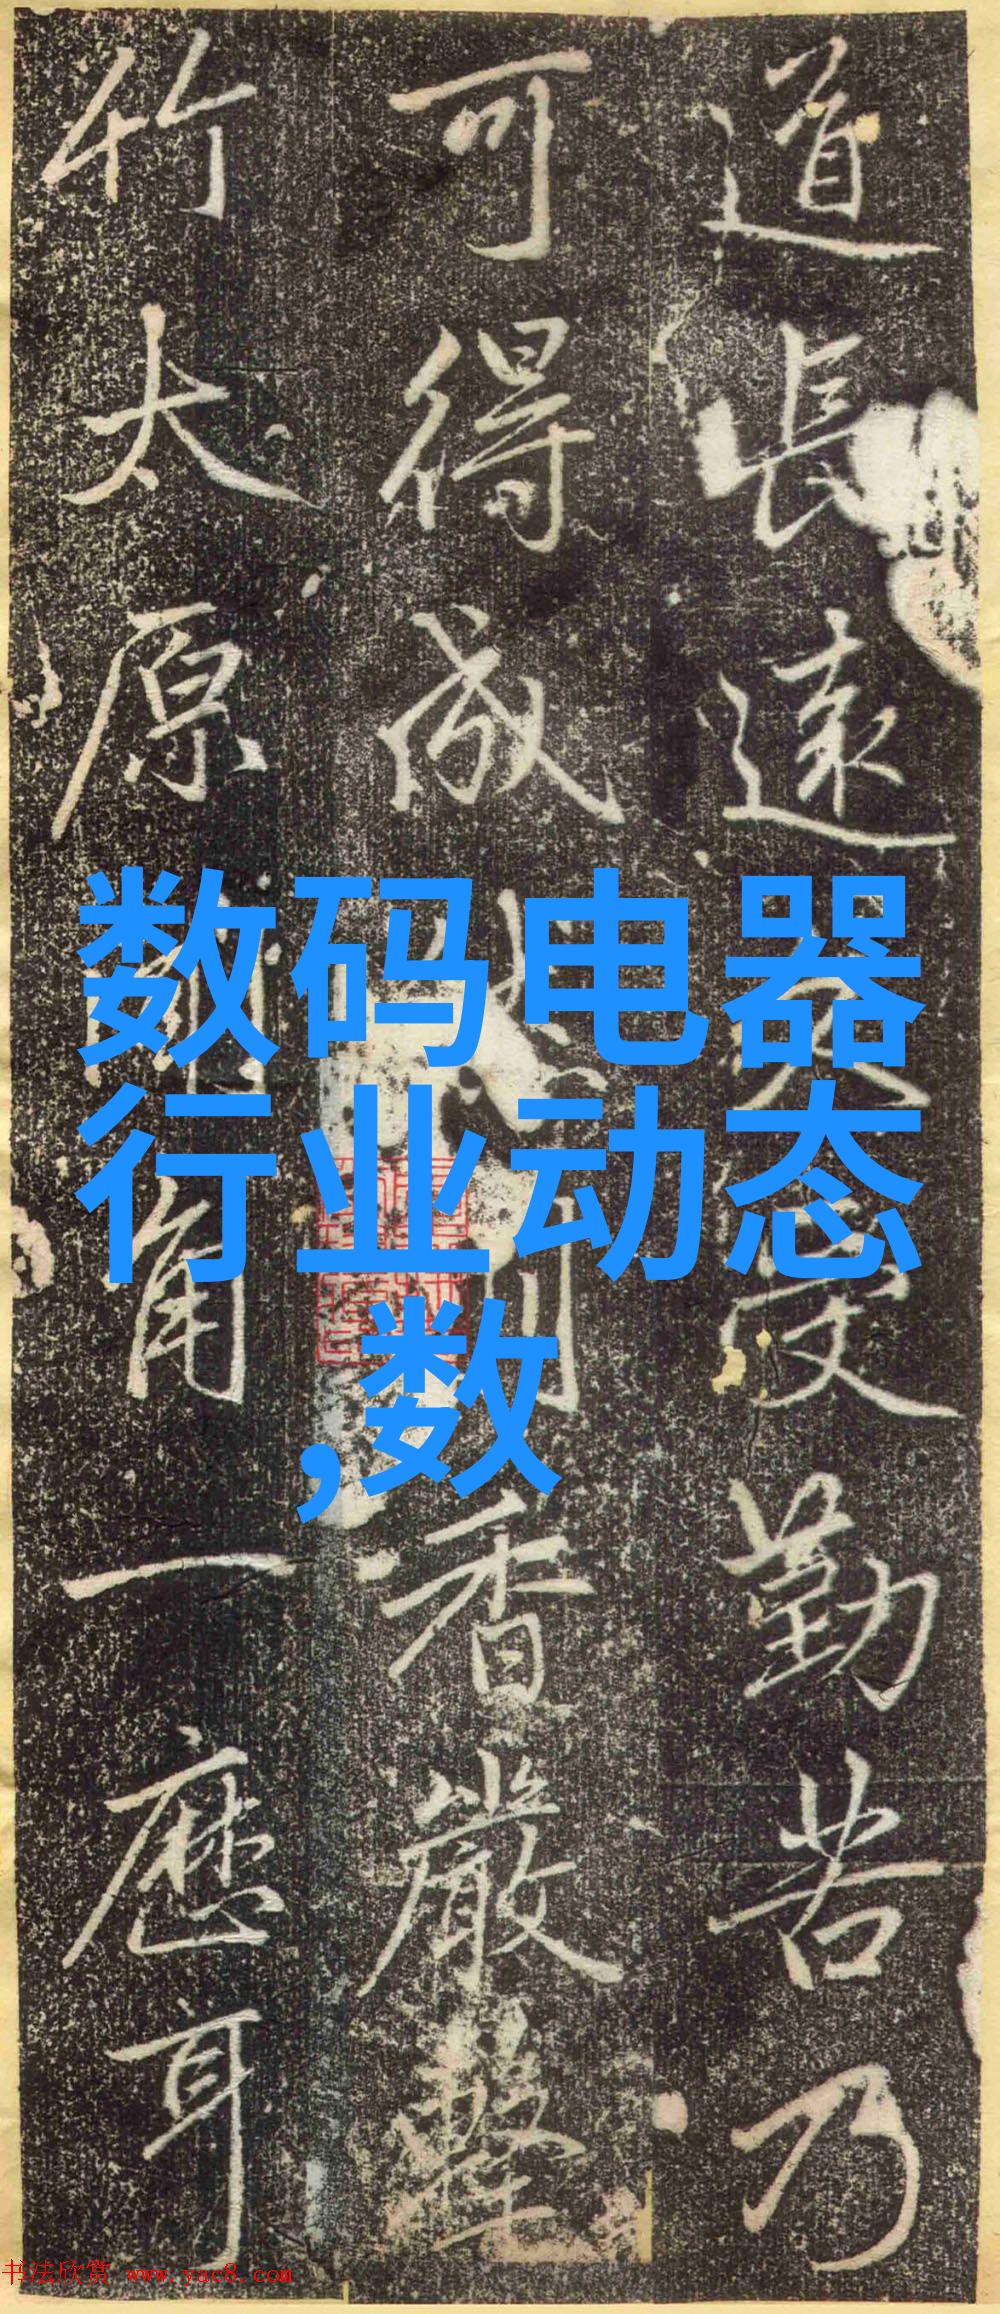 道長遠
受勤苦乃
可得成
香嚴擊
竹太原
角一應耳
数码电器
行业动态
,数
书法欣赏 www.yac8.com